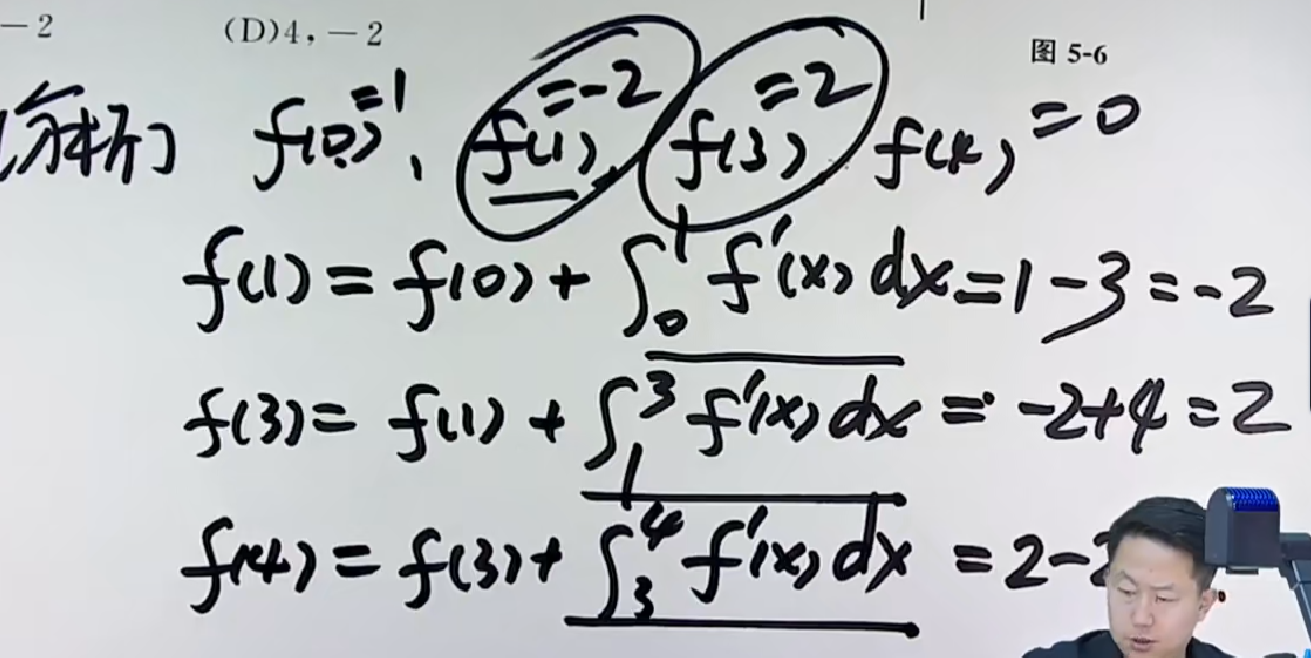 －2 (D)4，－2
图 5-6
[解析] f(0)=1, f(1)=-2, f(3)=2 f(4)=0
f(1)=f(0)+∫₀¹f'(x)dx=1-3=-2
f(3)=f(1)+∫₁³f'(x)dx=-2+4=2
f(4)=f(3)+∫₃⁴f'(x)dx=2-2